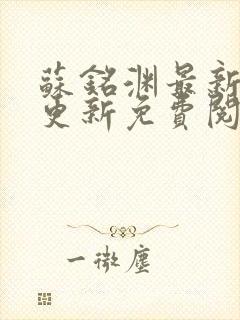 蘇銘淵最新
更新免費閱
一微塵